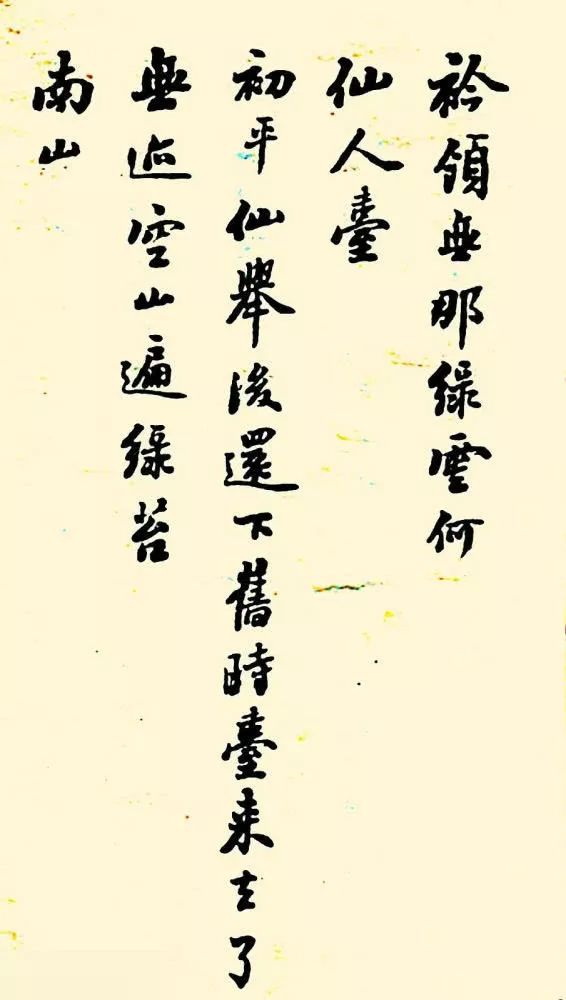 衿領無那綠雲何
仙人臺
初平仙舉後還下舊時臺来去了
無迹空山遍綠苔
南山